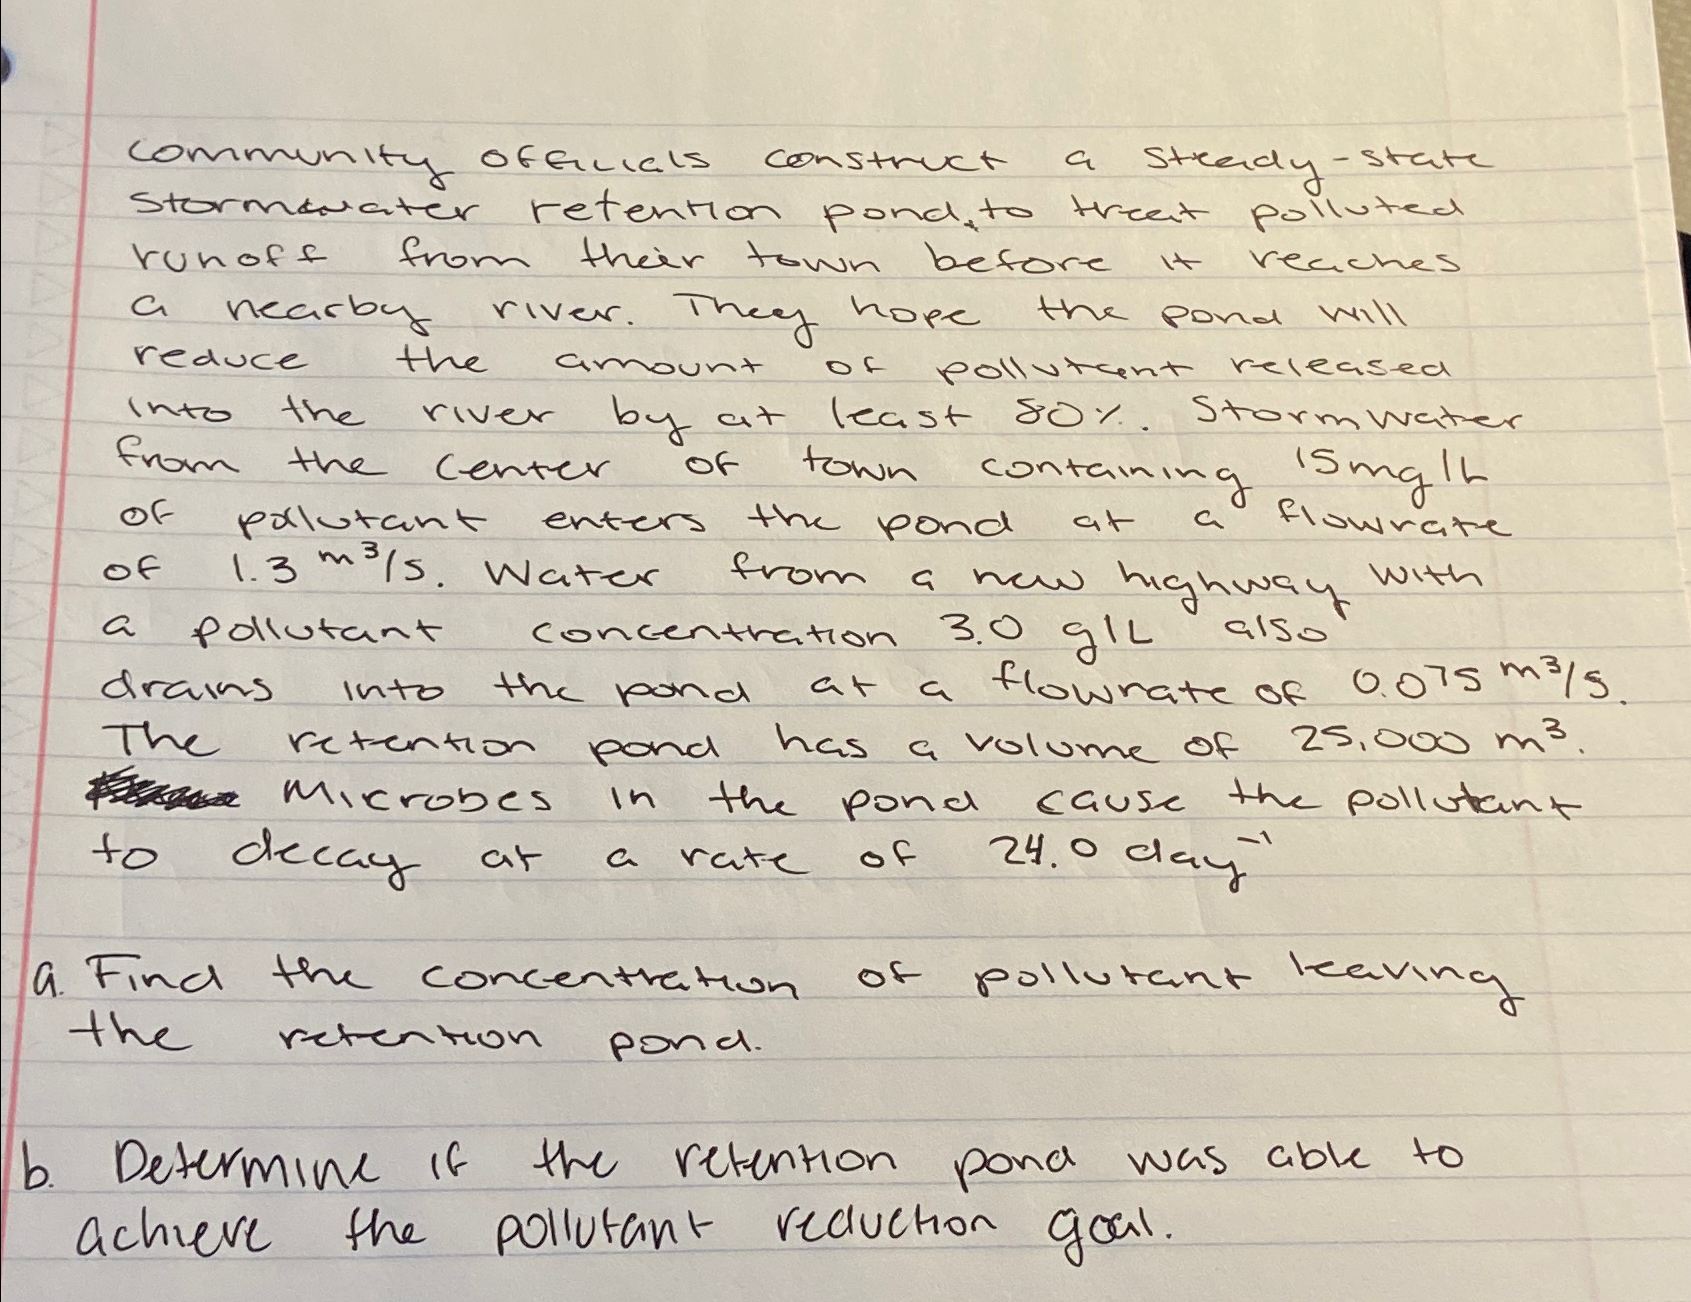 community officials construct a steady-state
stormwater retention pond, to treat polluted
runoff from their town before it reaches
a nearby river. They hope the pond will
reduce the amount of pollutant released
into the river by at least 80%. Stormwater
from the center of town containing 15mg/L
of pollutant enters the pond at a flowrate
of 1.3 m³/s. Water from a new highway with
a pollutant concentration 3.0 g/L also
drains into the pond at a flowrate of 0.075 m³/s.
The retention pond has a volume of 25,000 m³.
Microbes in the pond cause the pollutant
to decay at a rate of 24.0 day⁻¹
a. Find the concentration of pollutant leaving
the retention pond.
b. Determine if the retention pond was able to
achieve the pollutant reduction goal.